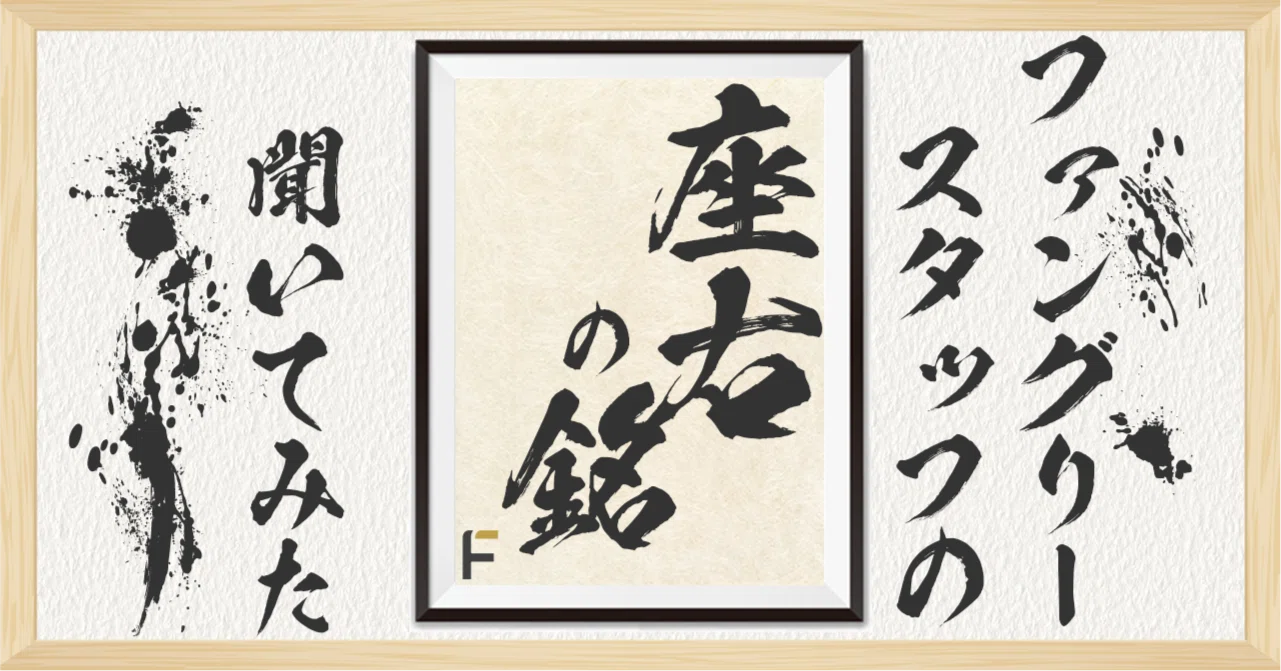 ファングリー
スタッフの
座右
の銘
F
聞いてみた